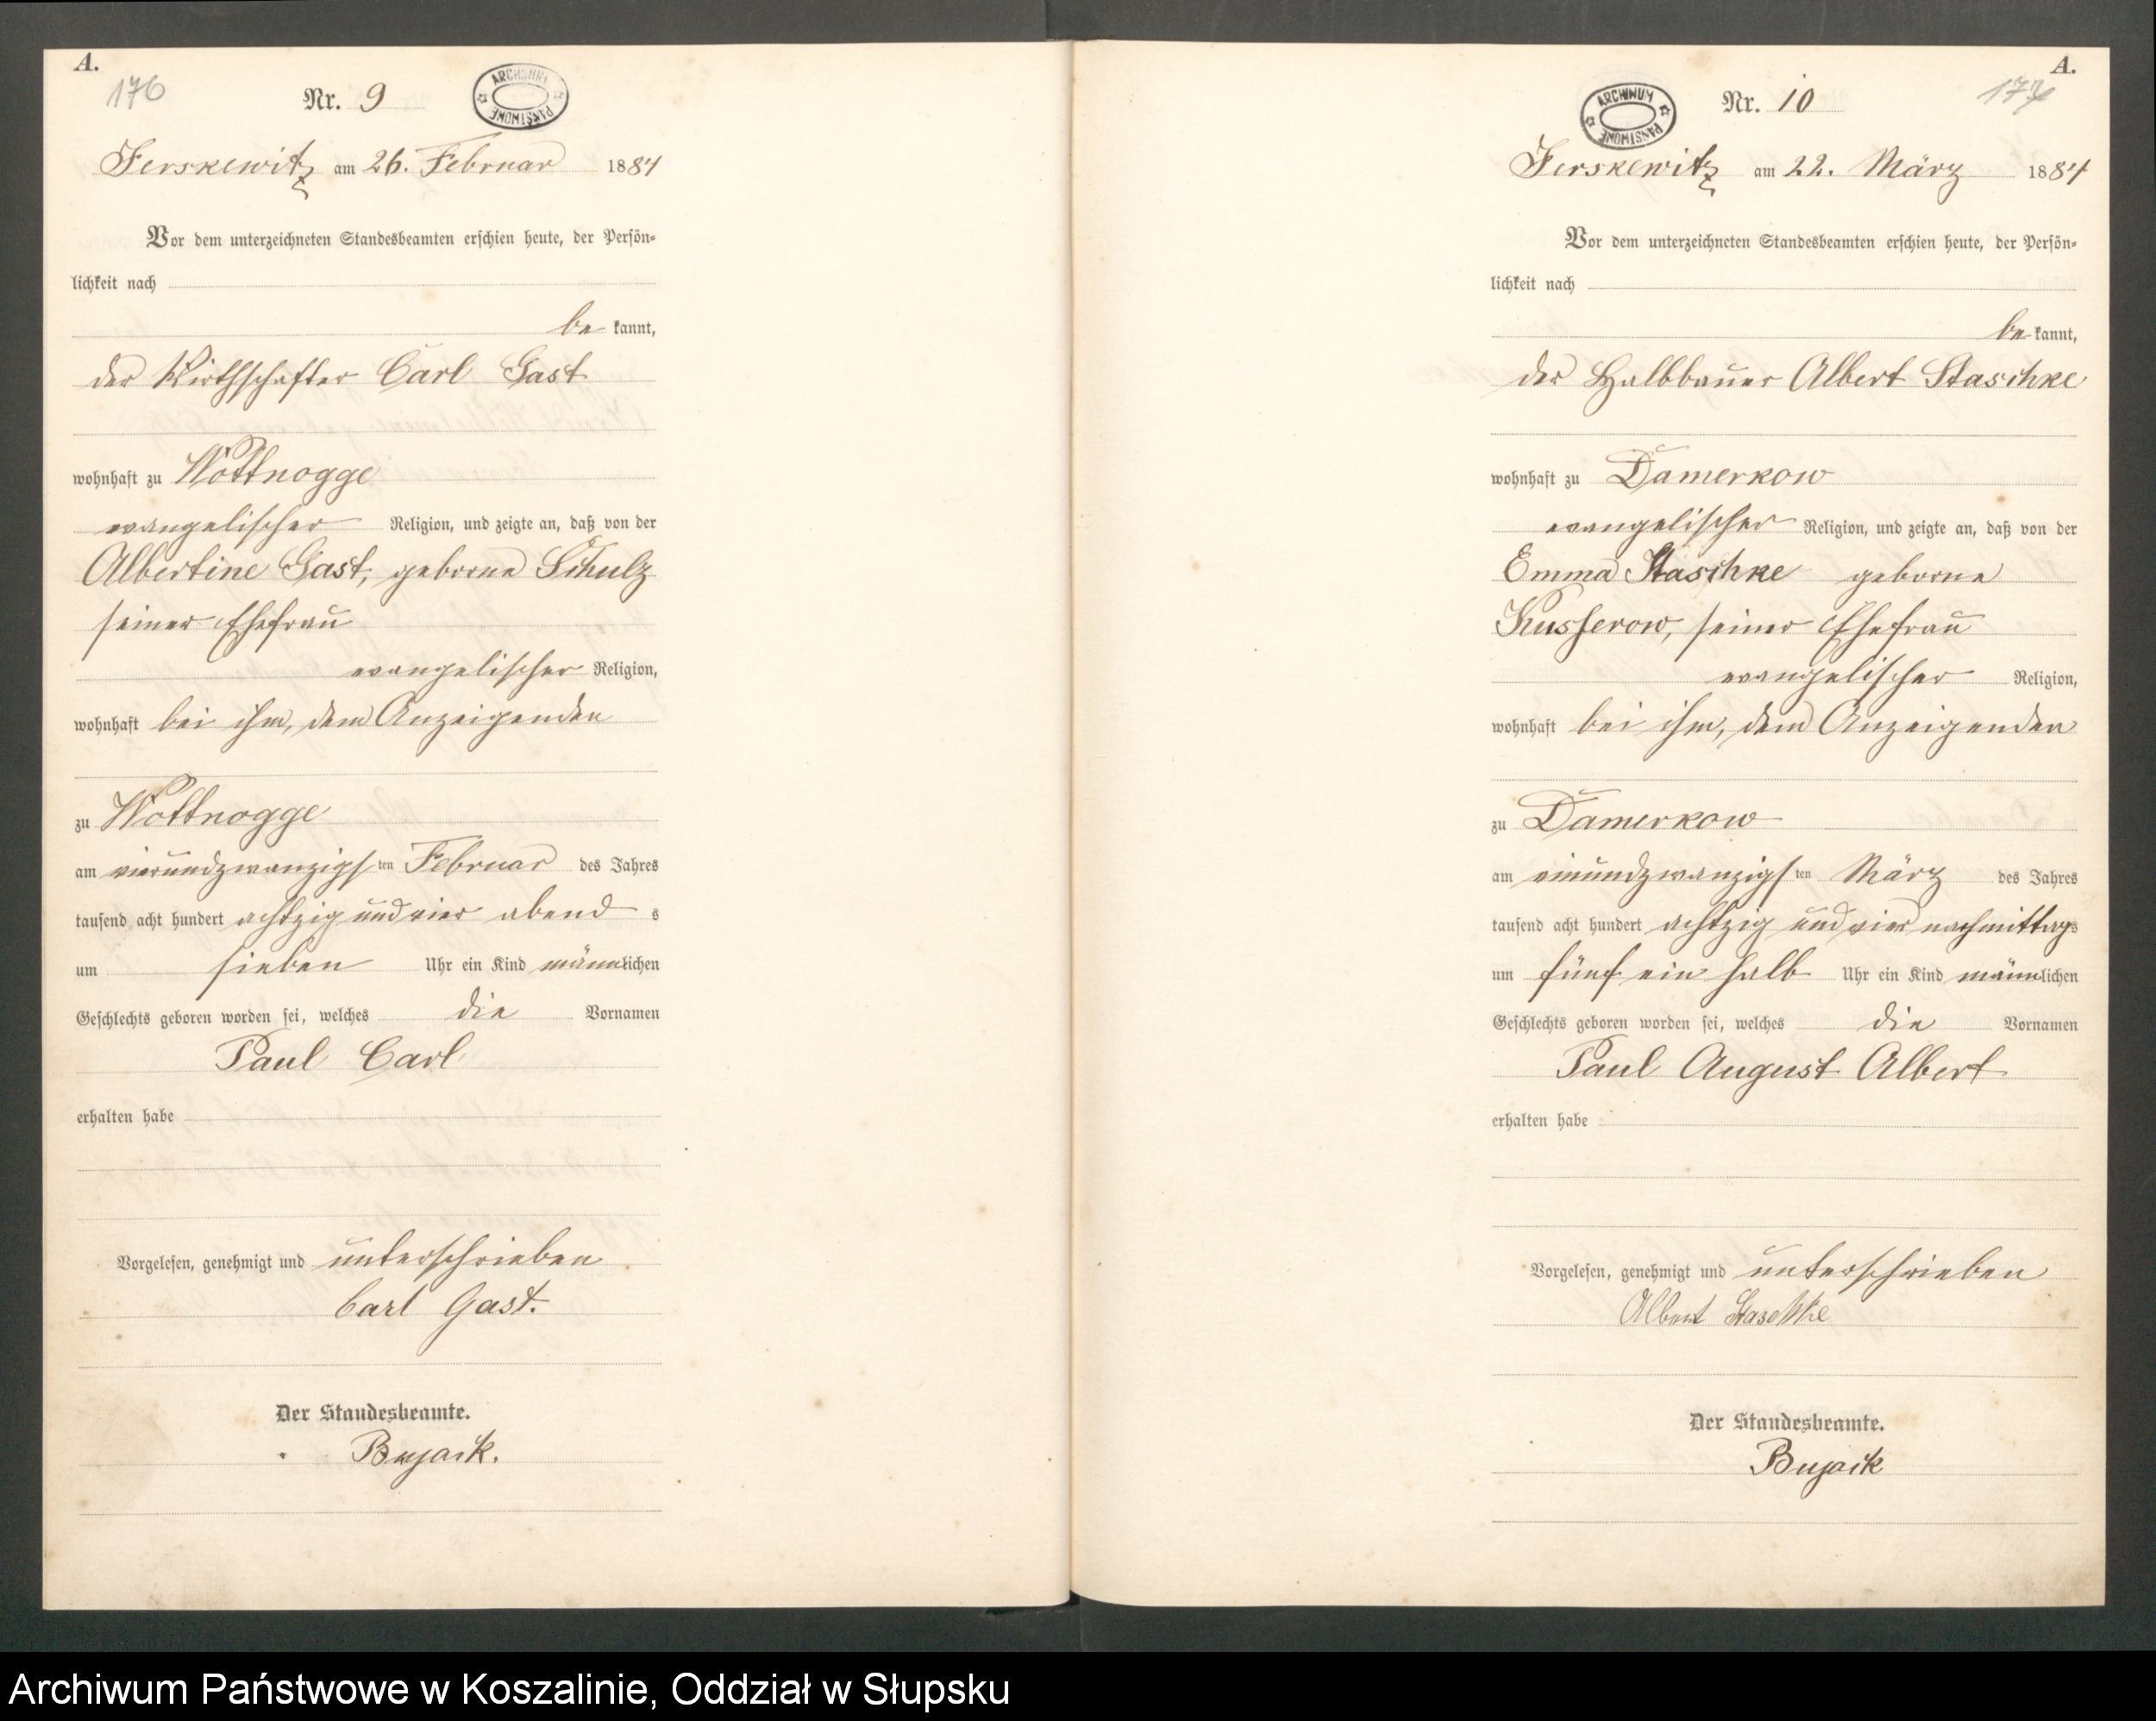 A.
176
Nr. 9
ARCHIWUM PAŃSTWOWE
Jerskewitz am 26. Februar 1884
Vor dem unterzeichneten Standesbeamten erschien heute, der Persön-
lichkeit nach
be kannt,
der Wirthschafter Carl Gast
wohnhaft zu Wottnogge
evangelischer Religion, und zeigte an, daß von der
Albertine Gast, geborne Schulz
seiner Ehefrau
evangelischer Religion,
wohnhaft bei ihm, dem Anzeigenden
zu Wottnogge
am vierundzwanzigsten Februar des Jahres
tausend acht hundert achtzig und vier abend s
um sieben Uhr ein Kind männlichen
Geschlechts geboren worden sei, welches die Vornamen
Paul Carl
erhalten habe
Vorgelesen, genehmigt und unterschrieben
Carl Gast.
Der Standesbeamte.
Bujack.
A.
177
Nr. 10
ARCHIWUM PAŃSTWOWE
Jerskewitz am 22. März 1884
Vor dem unterzeichneten Standesbeamten erschien heute, der Persön-
lichkeit nach
be kannt,
der Halbbauer Albert Staschke
wohnhaft zu Damerkow
evangelischer Religion, und zeigte an, daß von der
Emma Staschke geborne
Kusserow, seiner Ehefrau
evangelischer Religion,
wohnhaft bei ihm, dem Anzeigenden
zu Damerkow
am einundzwanzigsten März des Jahres
tausend acht hundert achtzig und vier nachmittags
um fünf ein halb Uhr ein Kind männlichen
Geschlechts geboren worden sei, welches die Vornamen
Paul August Albert
erhalten habe
Vorgelesen, genehmigt und unterschrieben
Albert Staschke
Der Standesbeamte.
Bujack
Archiwum Państwowe w Koszalinie, Oddział w Słupsku